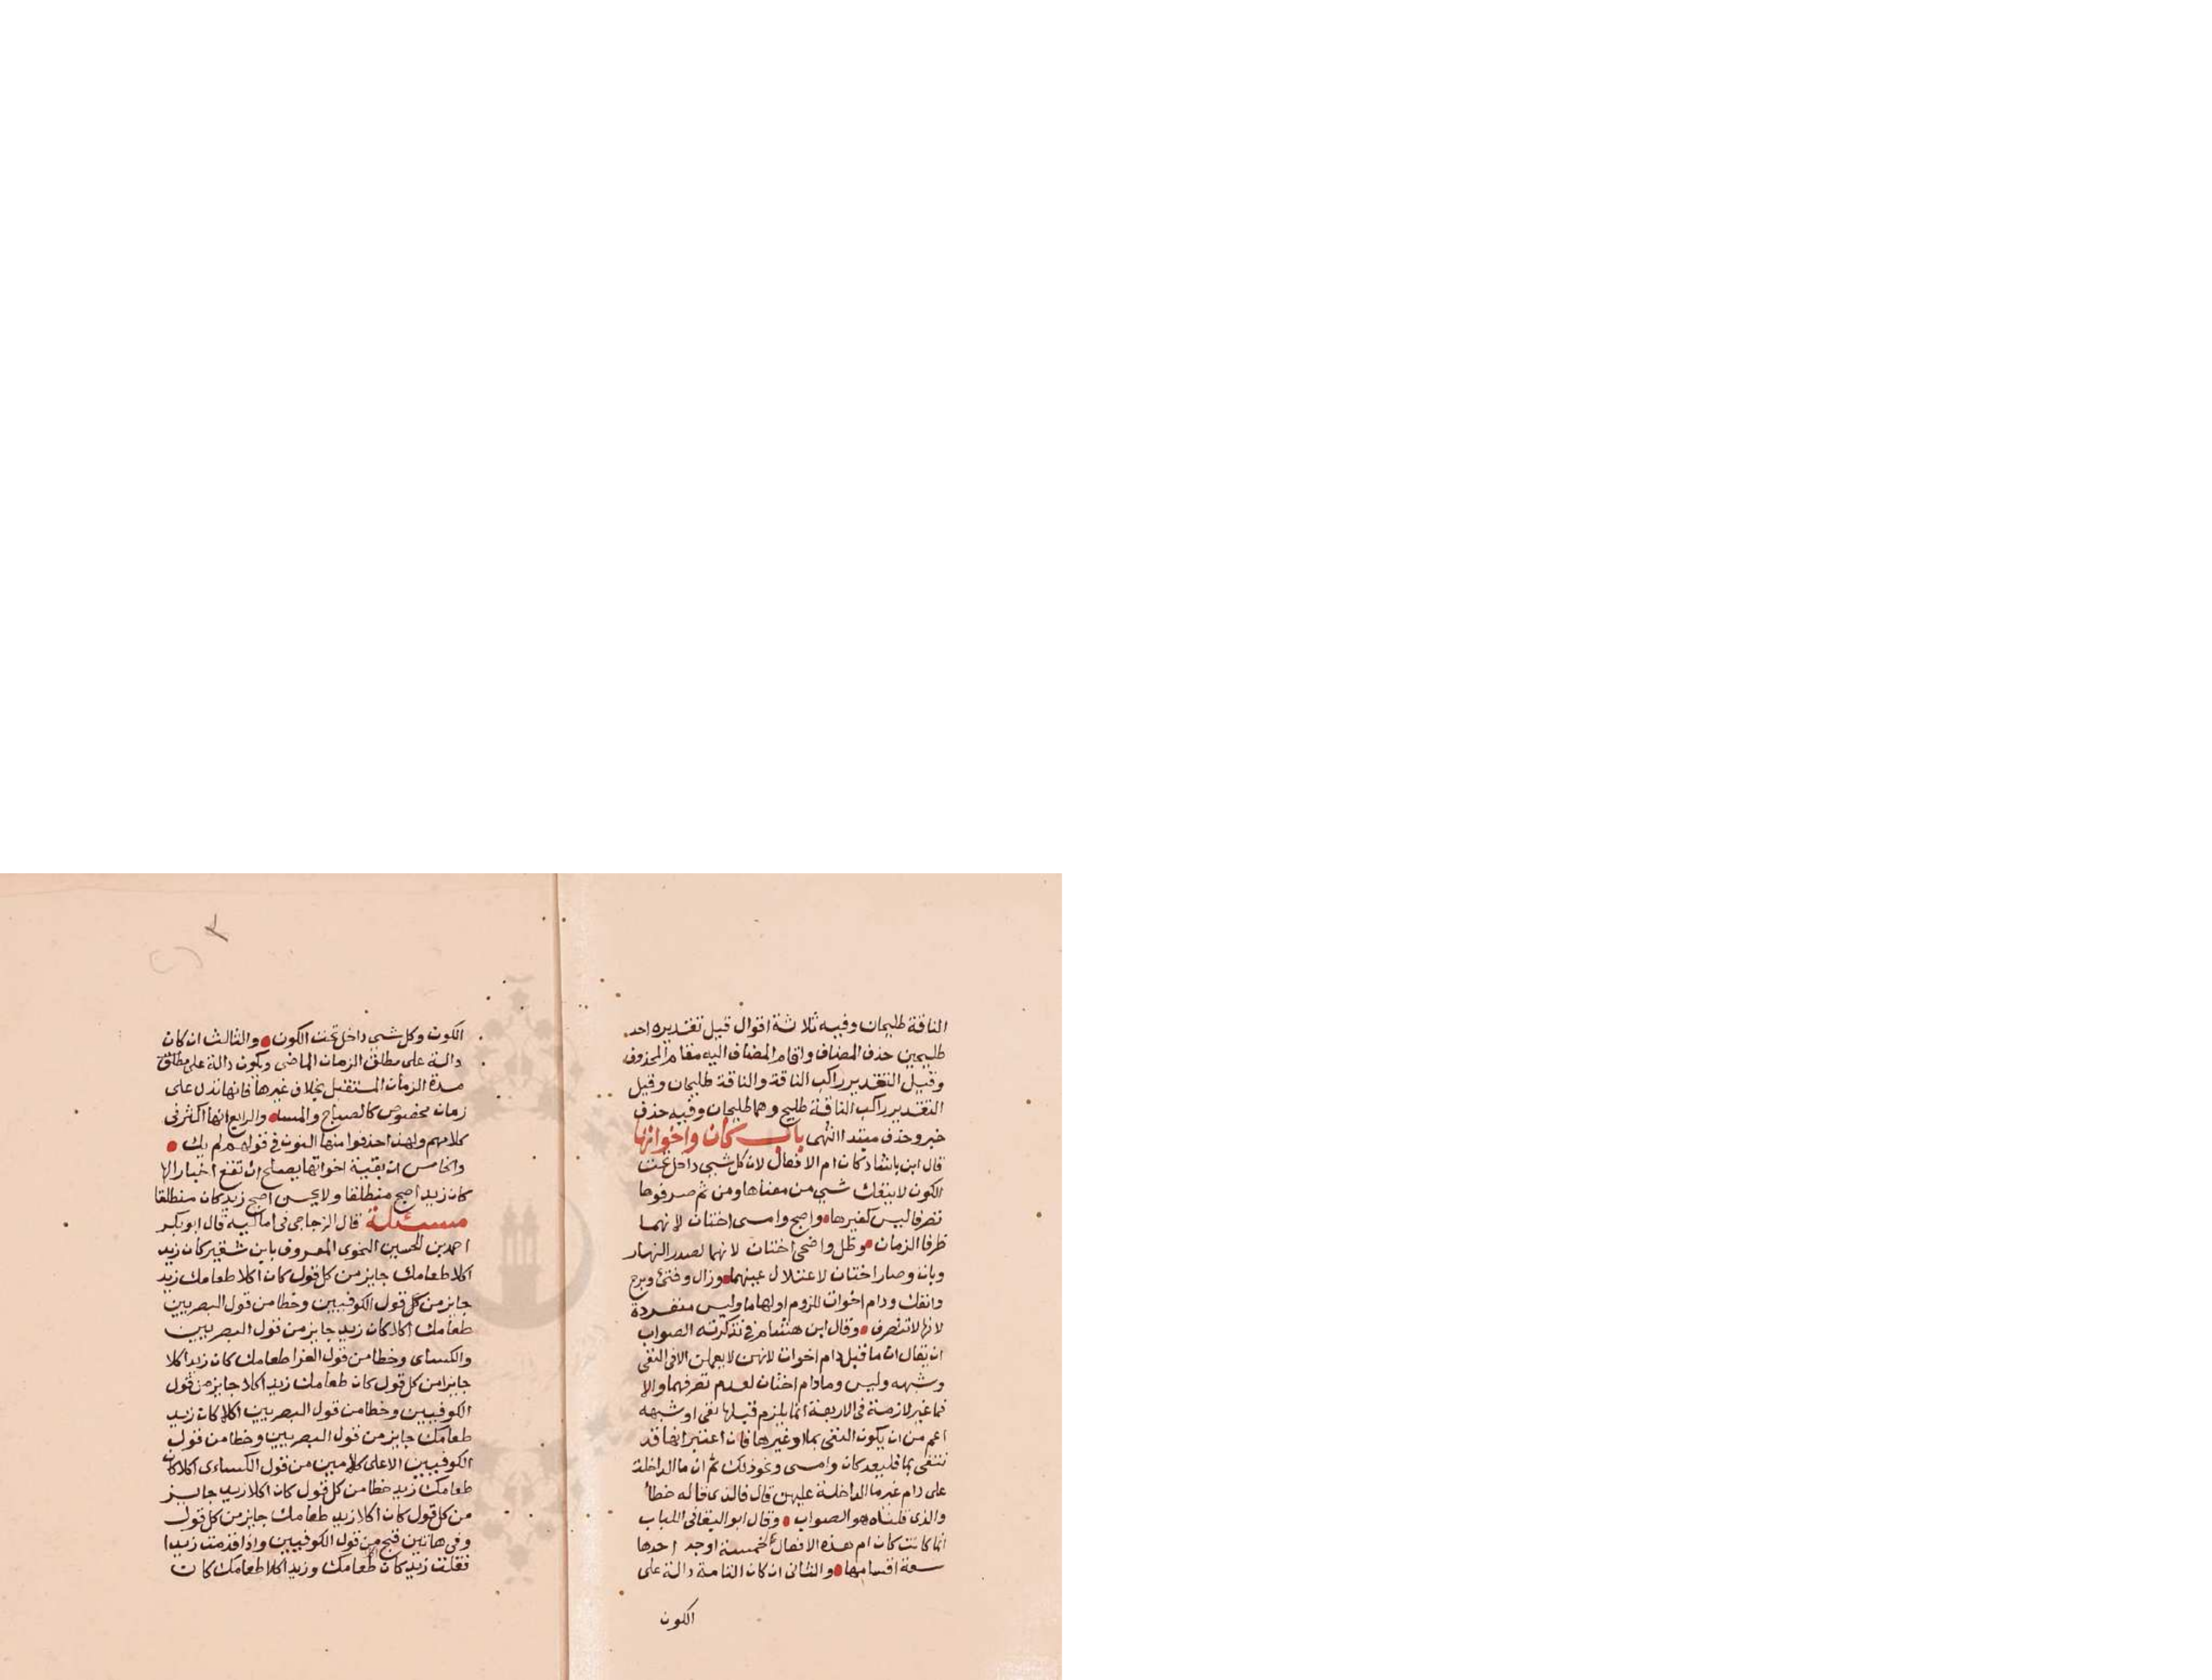 الناقة طليحان وفيه ثلاثة اقوال قيل تقديره احد
طليحين حذف المضاف واقام المضاف اليه مقام المحذوف
وقيل التقدير راكب الناقة والناقة طليحان وقيل
التقدير راكب الناقة طليح وهما طليحان وفيه حذف
خبر وحذف مبتدا انتهى باب كان واخواتها
قال ابن بابشاد كان ام الافعال لان كل شي داخل تحت
الكون لا ينفك شي من معناها ومن ثم صرفوها
تصرفا ليس لغيرها واصبح وامسى اختان لانهما
طرفا الزمان وظل واضحى اختان لانهما لصدر النهار
وبات وصار اختان لاعتلال عينهما وزال وفتئ وبرح
وانفك ودام اخوات للزوم اولها ما وليس منفردة
لانها لا تتصرف وقال ابن هشام في تذكرته الصواب
ان يقال ان ما قبل دام اخوات لانهن لا يعملن الا في النفي
وشبهه وليس وما دام اختان لعدم تصرفهما والا
فما غير لازمة في الاربعة انما يلزم قبلها نفي او شبهه
اعم من ان يكون النفي بما او غيرها فان اعتبر انها قد
تنفى بما فليعد كان وامسى ونحو ذلك ثم ان ما الداخلة
على دام غير ما الداخلة عليهن قال فالذي قاله خطأ
والذي قلناه هو الصواب وقال ابو البقا في اللباب
انما كانت كان ام هذه الافعال لخمسة اوجه احدها
سعة اقسامها والثاني ان كان التامة دالة على
الكون
الكون وكل شي داخل تحت الكون والثالث ان كان
دالة على مطلق الزمان الماضي ويكون دالة على مطلق
مدة الزمان المستقبل بخلاف غيرها فانها تدل على
زمان مخصوص كالصباح والمسا والرابع انها اكثر في
كلامهم ولهذا حذفوا منها النون في قولهم لم يك
والخامس ان بقية اخواتها يصلح ان تقع اخبارا لها
كان زيد اصبح منطلقا ولا يحسن اصبح زيد كان منطلقا
مسئلة قال الزجاجي في اماليه قال ابو بكر
احمد بن الحسين النحوي المعروف بابن شقير كان زيد
اكلا طعامك جايز من كل قول كان اكلا طعامك زيد
جايز من كل قول الكوفيين وخطا من قول البصريين
طعامك اكلا كان زيد جايز من قول البصريين
والكساى وخطا من قول الفرا طعامك كان زيد اكلا
جايز من كل قول كان طعامك زيد اكلا جايز من قول
الكوفيين وخطا من قول البصريين اكلا كان زيد
طعامك جايز من قول البصريين وخطا من قول
الكوفيين الا على كلامين من قول الكساءى اكلا كان
طعامك زيد خطا من كل قول كان اكلا زيد جايز
من كل قول كان اكلا زيد طعامك جايز من كل قول
وفي هاتين قبح من قول الكوفيين واذا قدمت زيدا
فقلت زيد كان طعامك وزيد اكلا طعامك كان